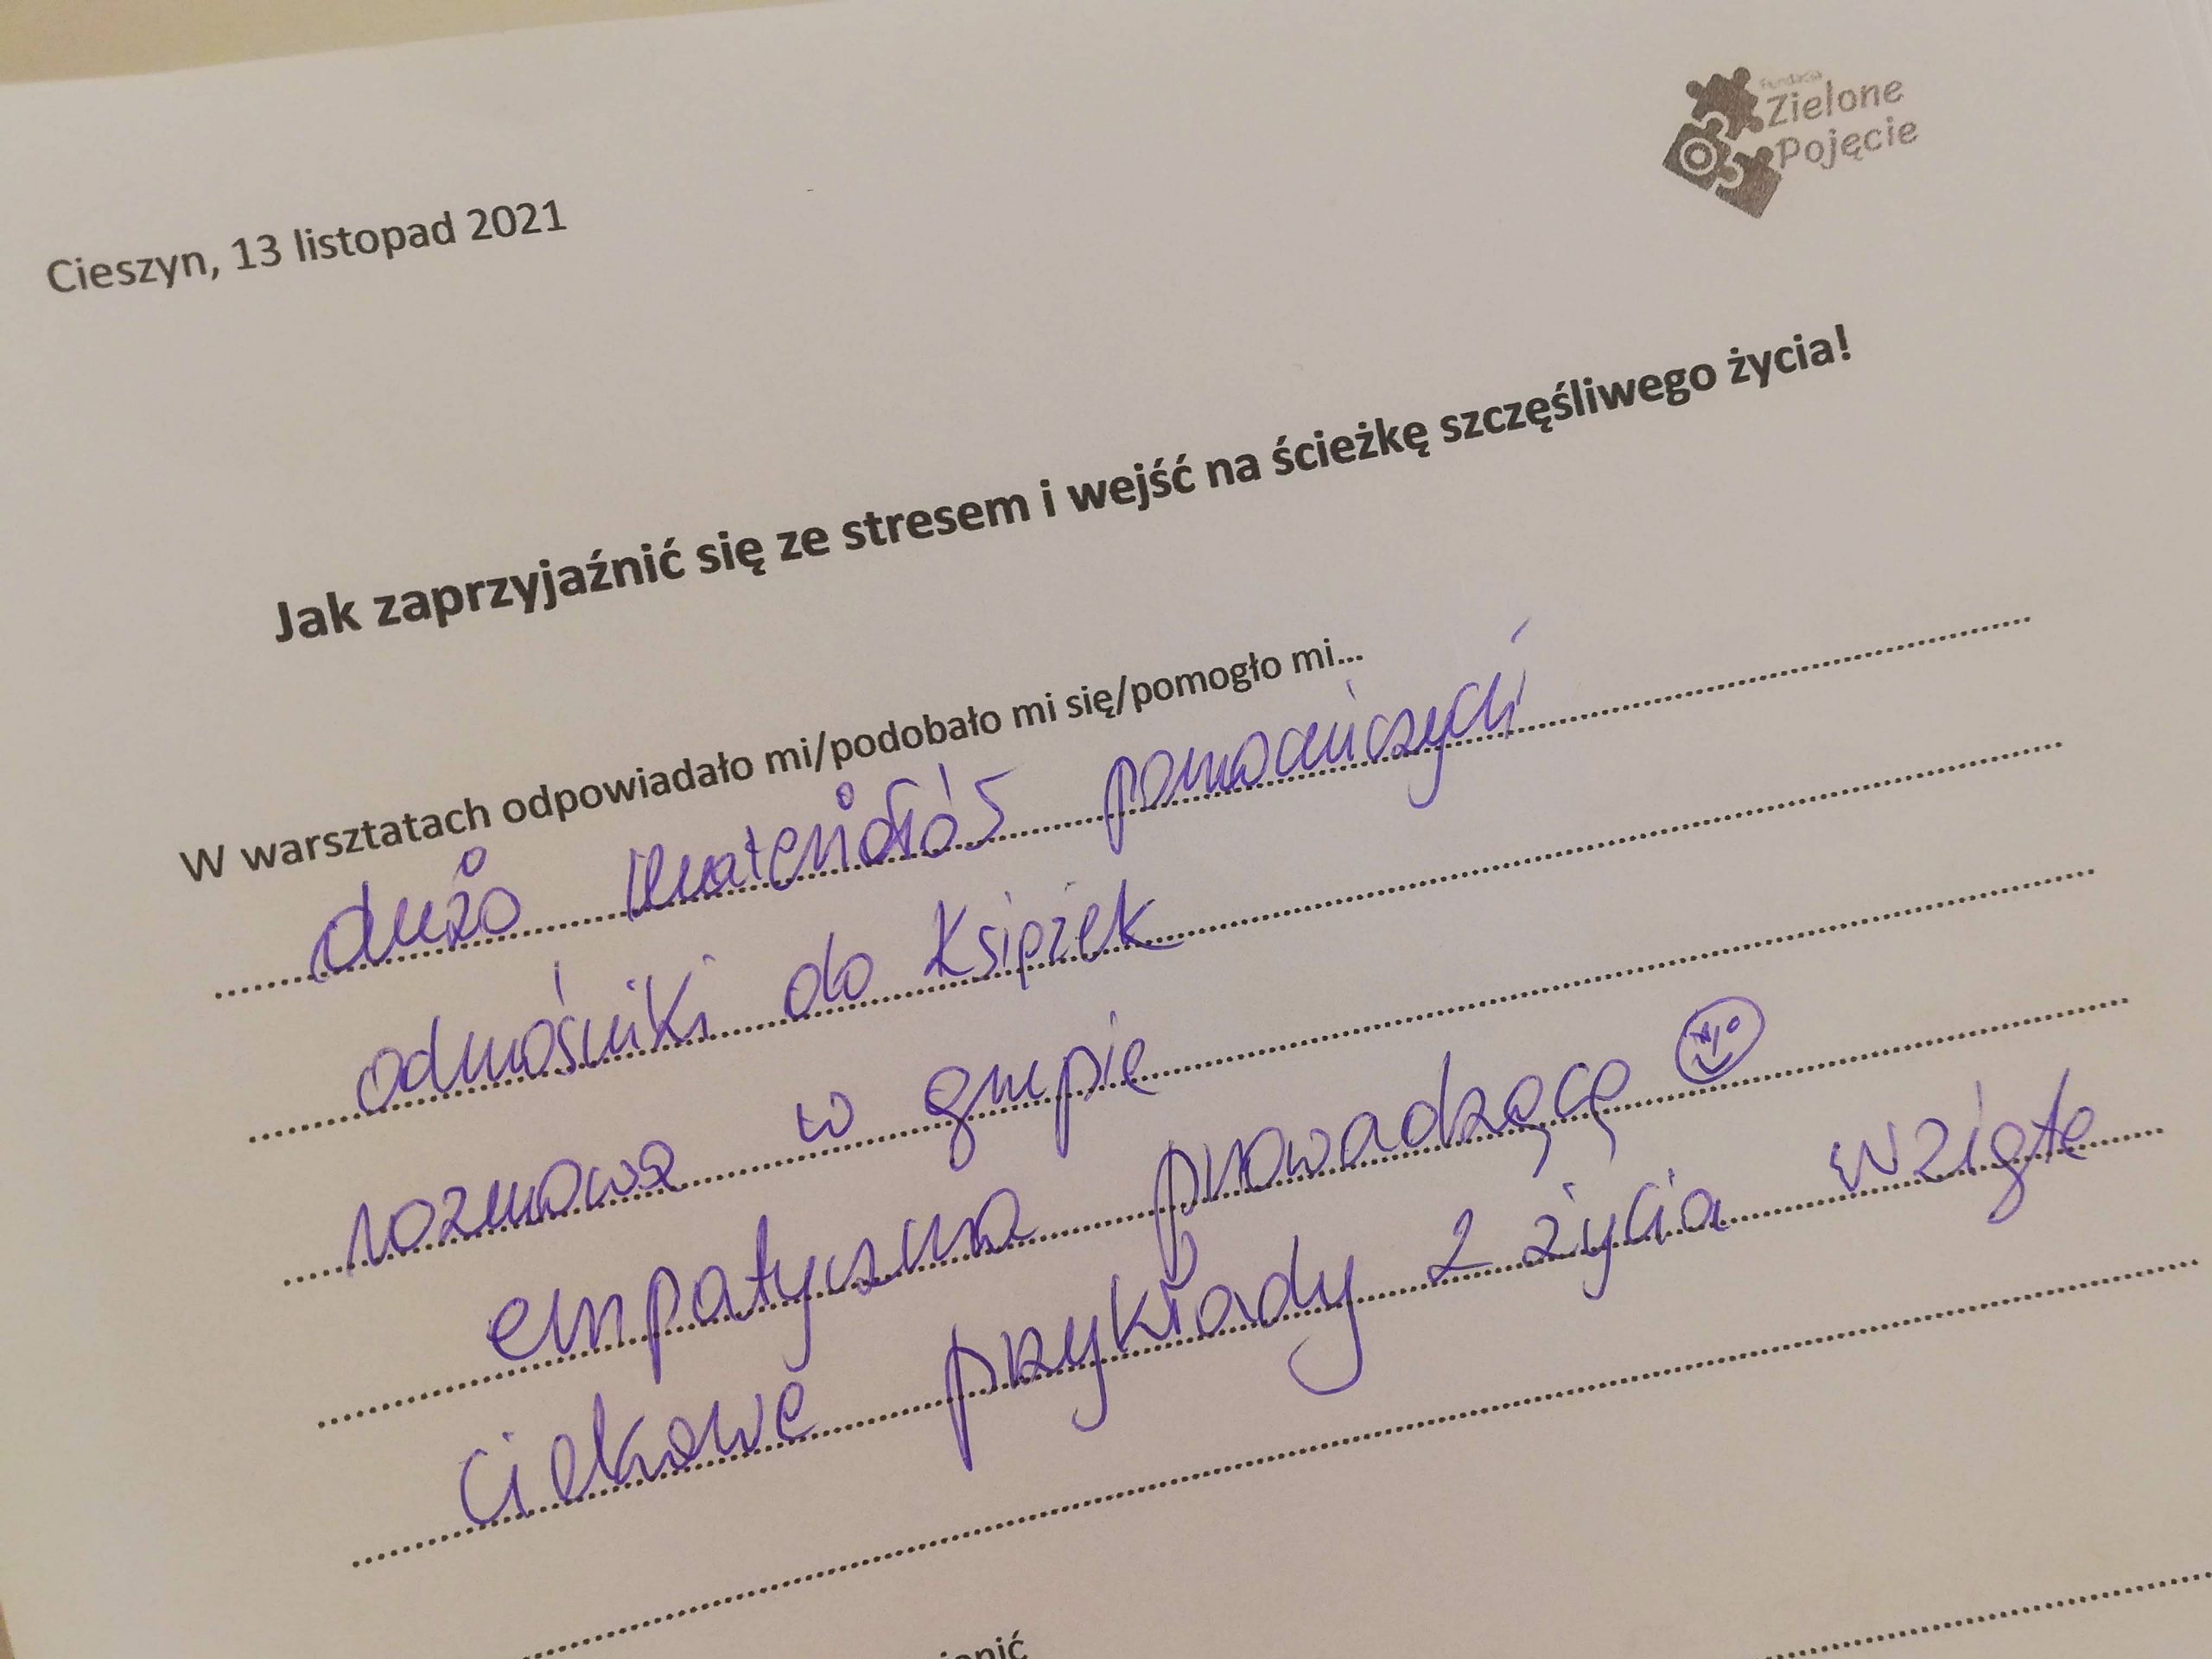 Fundacja
Zielone
Pojęcie
Cieszyn, 13 listopad 2021
Jak zaprzyjaźnić się ze stresem i wejść na ścieżkę szczęśliwego życia!
W warsztatach odpowiadało mi/podobało mi się/pomogło mi...
dużo materiałów pomocniczych
odnośniki do książek
rozmowa w grupie
empatyczna prowadząca
ciekawe przykłady z życia wzięte